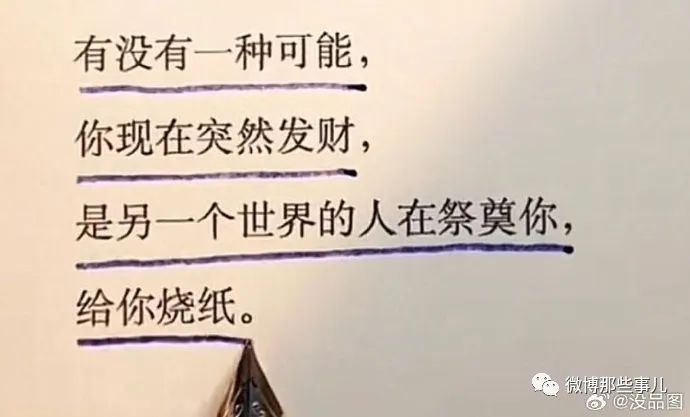 有没有一种可能，
你现在突然发财，
是另一个世界的人在祭奠你，
给你烧纸。
微博那些事儿
@没品图